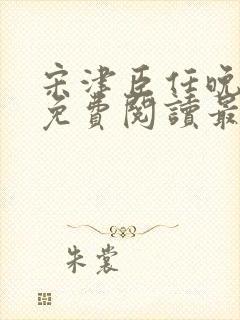 宋津臣任晚
免費閱讀最
朱裳